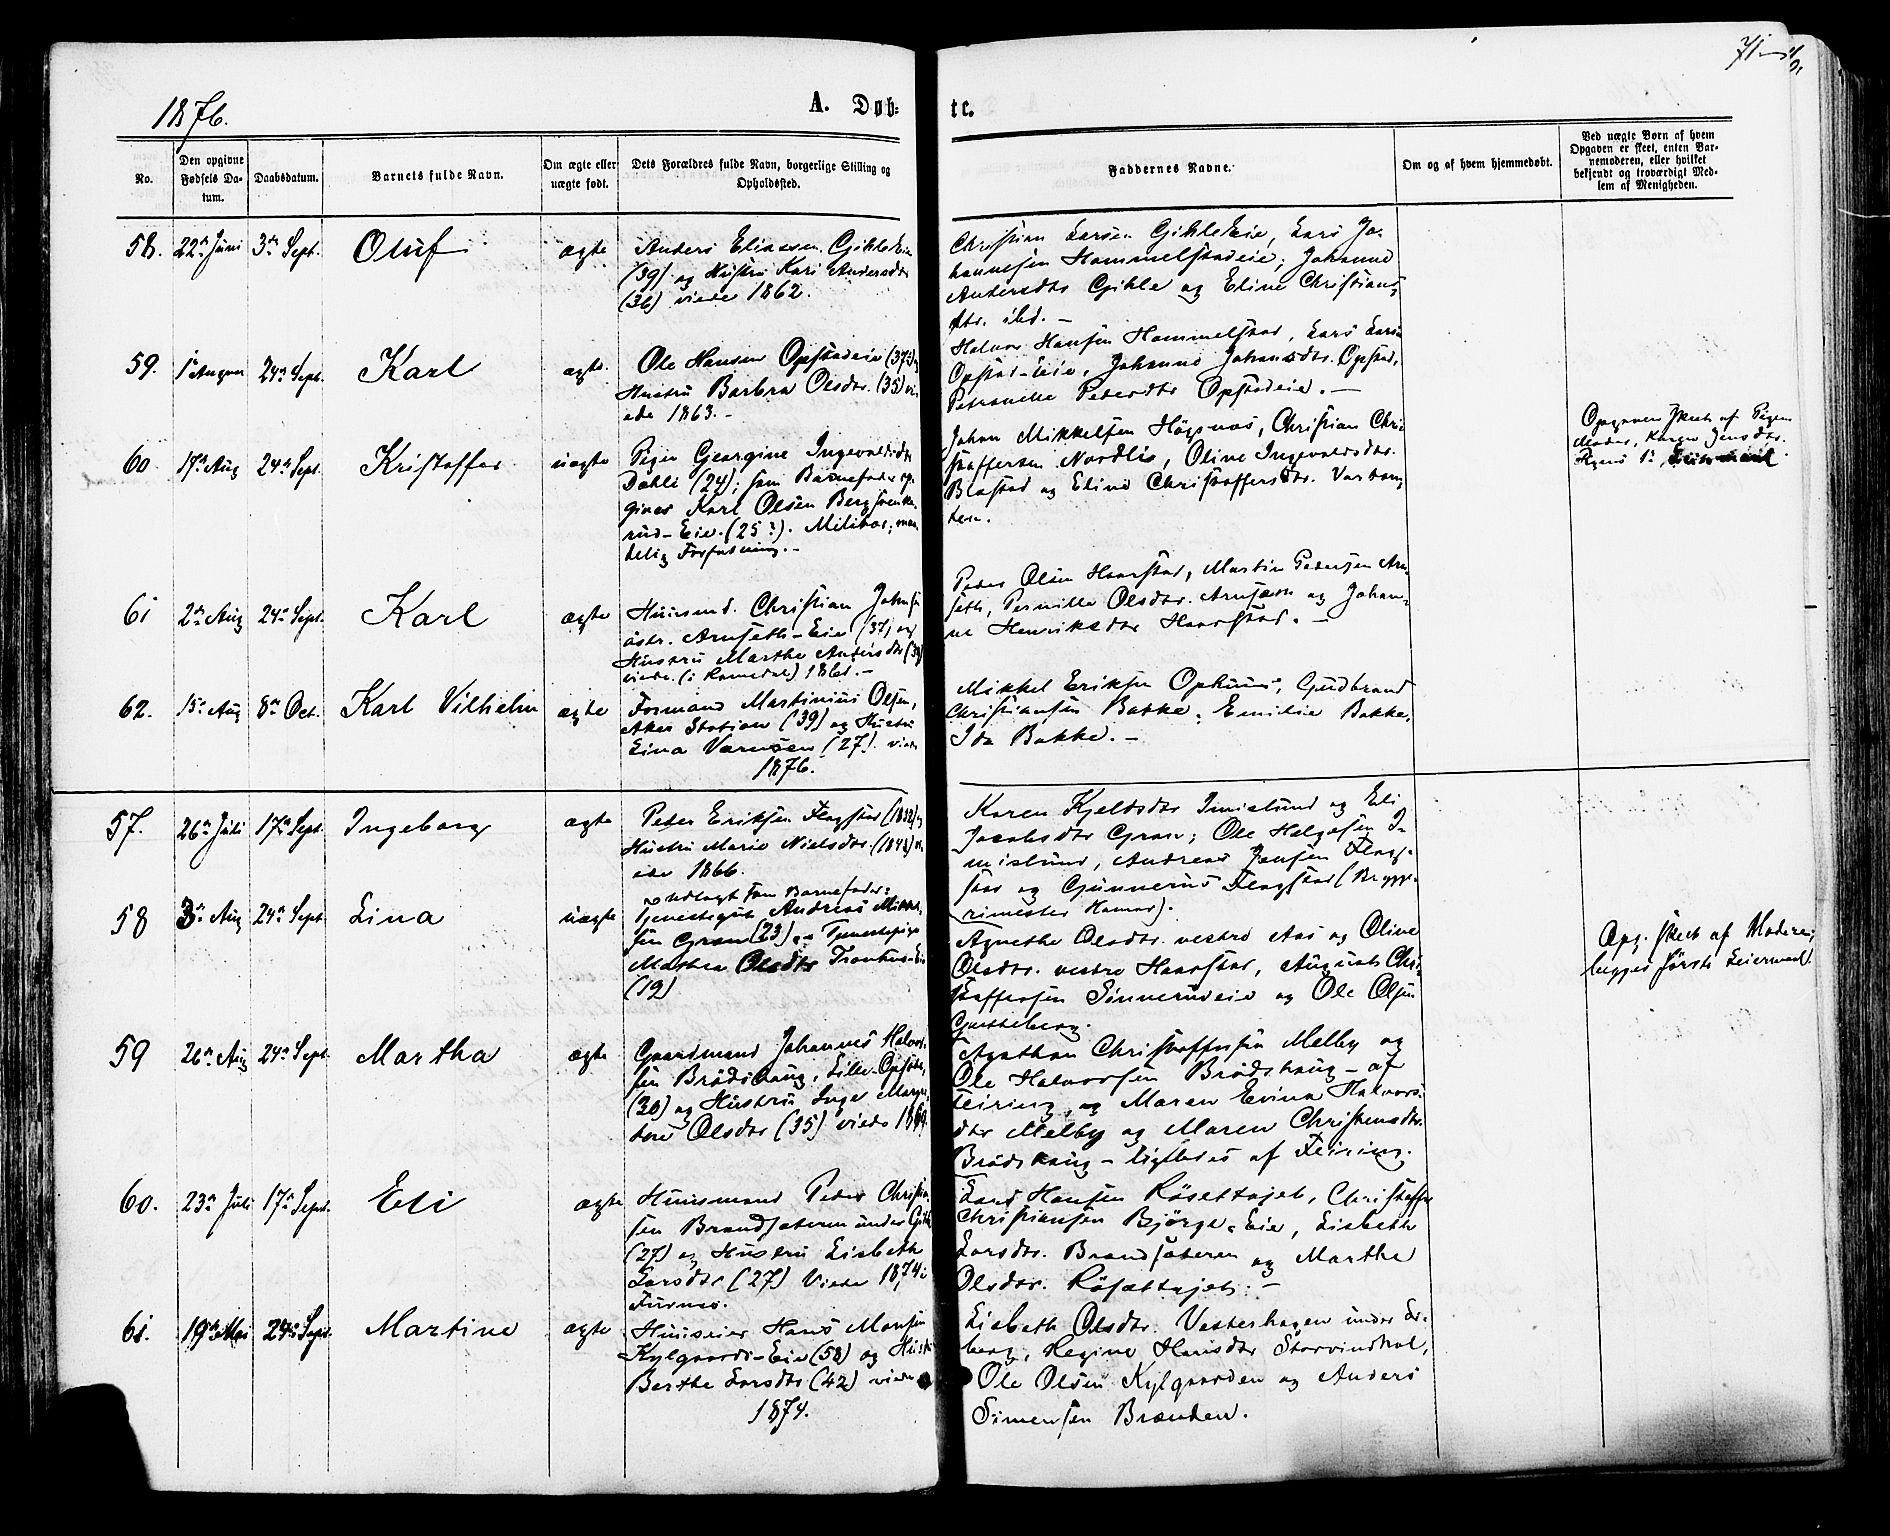 71
1876.
A. Døb-
te.
No.
Den opgivne
Fødsels Da-
tum.
Daabsdatum.
Barnets fulde Navn.
Om ægte eller
uægte født.
Dets Forældres fulde Navn, borgerlige Stilling og
Opholdssted.
Faddernes Navne.
Om og af hvem hjemmedøbt.
Ved uægte Børn af hvem
Opgaven er skeet, enten Bar-
nemoderen, eller hvilket
bekjendt og troværdigt Med-
lem af Menigheden.
58. 22de Juni 3de Sept. Oluf ægte
Anders Eliasen Gihleeie
(39) og Hustru Kari Andersdtr
(36) viede 1862.
Christian Larsen Gihleeie, Lars Jo-
hannesen Hommelstadeie, Johanne
Andersdtr Gihle og Eline Christians-
dtr. ibd. —
59. 1ste August 24de Sept. Karl ægte.
Ole Hansen Opstadeie (37½) og
Hustru Barbra Olsdtr. (35) vi-
ede 1863. —
Halvor Hansen Hommelstad, Lars Larsen
Opstad-Eie, Johanne Johansdtr. Opstad,
Petronelle Pedersdtr Opstadeie. —
60. 17de Aug 24de Sept. Kristoffer uægte
Pige Georgine Ingevaldsdtr
Dahli (24); som Barnefader op-
gives Karl Olsen Bergsvenke-
rud-Eie. (25?). Militær, man-
delig Forfatning. —
Johan Mikkelsen Högsnæs, Christian Chri-
stoffersen Nordlie, Oline Ingevaldsdtr.
Blæstad og Eline Christoffersdtr. Vordang-
tern.
Opgaven skeet af Pigens
Moder, Karen Jensdtr.
Pigens 1ste Leiermaal.
61 2den Aug 24de Sept. Karl ægte
Huusmd. Christian Johnsen
östr. Arnseth-Eie (37) og
Hustru Marthe Andersdtr (39)
viede (i Romedal) 1861. —
Peder Olsen Haarstad, Martin Pedersen Arn-
seth, Pernille Olsdtr. Arnseth og Johan-
ne Henriksdtr Haarstad. —
62. 15de Aug 8de Oct. Karl Vilhelm ægte
Formand Martinius Olsen,
Aker Station (39) og Hustru
LinaVærnsen (27) viede
1876.
Mikkel Eriksen Ophuus, Gudbrand
Christiansen Bakke, Emilie Bakke,
Ida Bakke. —
57. 26de Juli 17de Sept. Ingeborg ægte
Peder Eriksen Flagstad (1832) og
Hustru Marie Nielsdtr. (1842) vi-
ede 1866.
Karen Kjeldsdtr Imislund og Eli
Jacobsdtr Gran; Ole Helgesen I-
mislund, Andreas Jensen Flag-
stad og Gunnerus Flagstad (Brygge-
rimester Hamar).
58 3die Aug 24de Sept Lina uægte
Udlagt som Barnefader:
Tjenestegut Andreas Mikkel-
sen Gran (23). Tjenestepige
Mathea Olsdtr Tronhus-Eie
(19)
Agnethe Olsdtr. vestre Aas og Oline
Olsdtr. vestre Haarstad, August Chri-
stoffersen Sönnerudeie og Ole Olsen
Gutteberg.
Opg. skeet af Moderen;
begges første Leiermaal.
59 26de Aug 24de Sept. Martha ægte
Gaardmand Johannes Halvor-
sen Brödshaug, Lille-Opstad,
(30) og Hustru Inger Marga-
rete Olsdtr (35) viede 1869
Agathon Christoffersen Melby og
Ole Halvorsen Brödshaug — af
Feiring, og Maren Evina Halvors-
dtr Melby og Maren Christensdtr.
Brödshaug — ligeledes af Feiring.
60. 23de Juli 17de Sept. Eli ægte
Huusmand Peder Christian-
sen Brandsæteren under Gihle
(27) og Hustru Lisbeth
Larsdtr (27) Viede 1874 i
Furnes.
Lars Hansen Rösettajet, Christoffer
Christiansen Bjørge-Eie, Lisbeth
Larsdtr. Brandsæteren og Marthe
Olsdtr. Rösættajet. —
61. 19de Mai 24de Sept. Martine ægte
Huuseier Hans Monsen
Kylgaards-Eie (58) og Hustru
Berthe Larsdtr (42) viede
1874.
Lisbeth Olsdtr. Vesterhagen under Fr-
berg, Regine Hansdtr Storvindhol,
Ole Olsen Kylgaarden og Anders
Simensen Brænden.